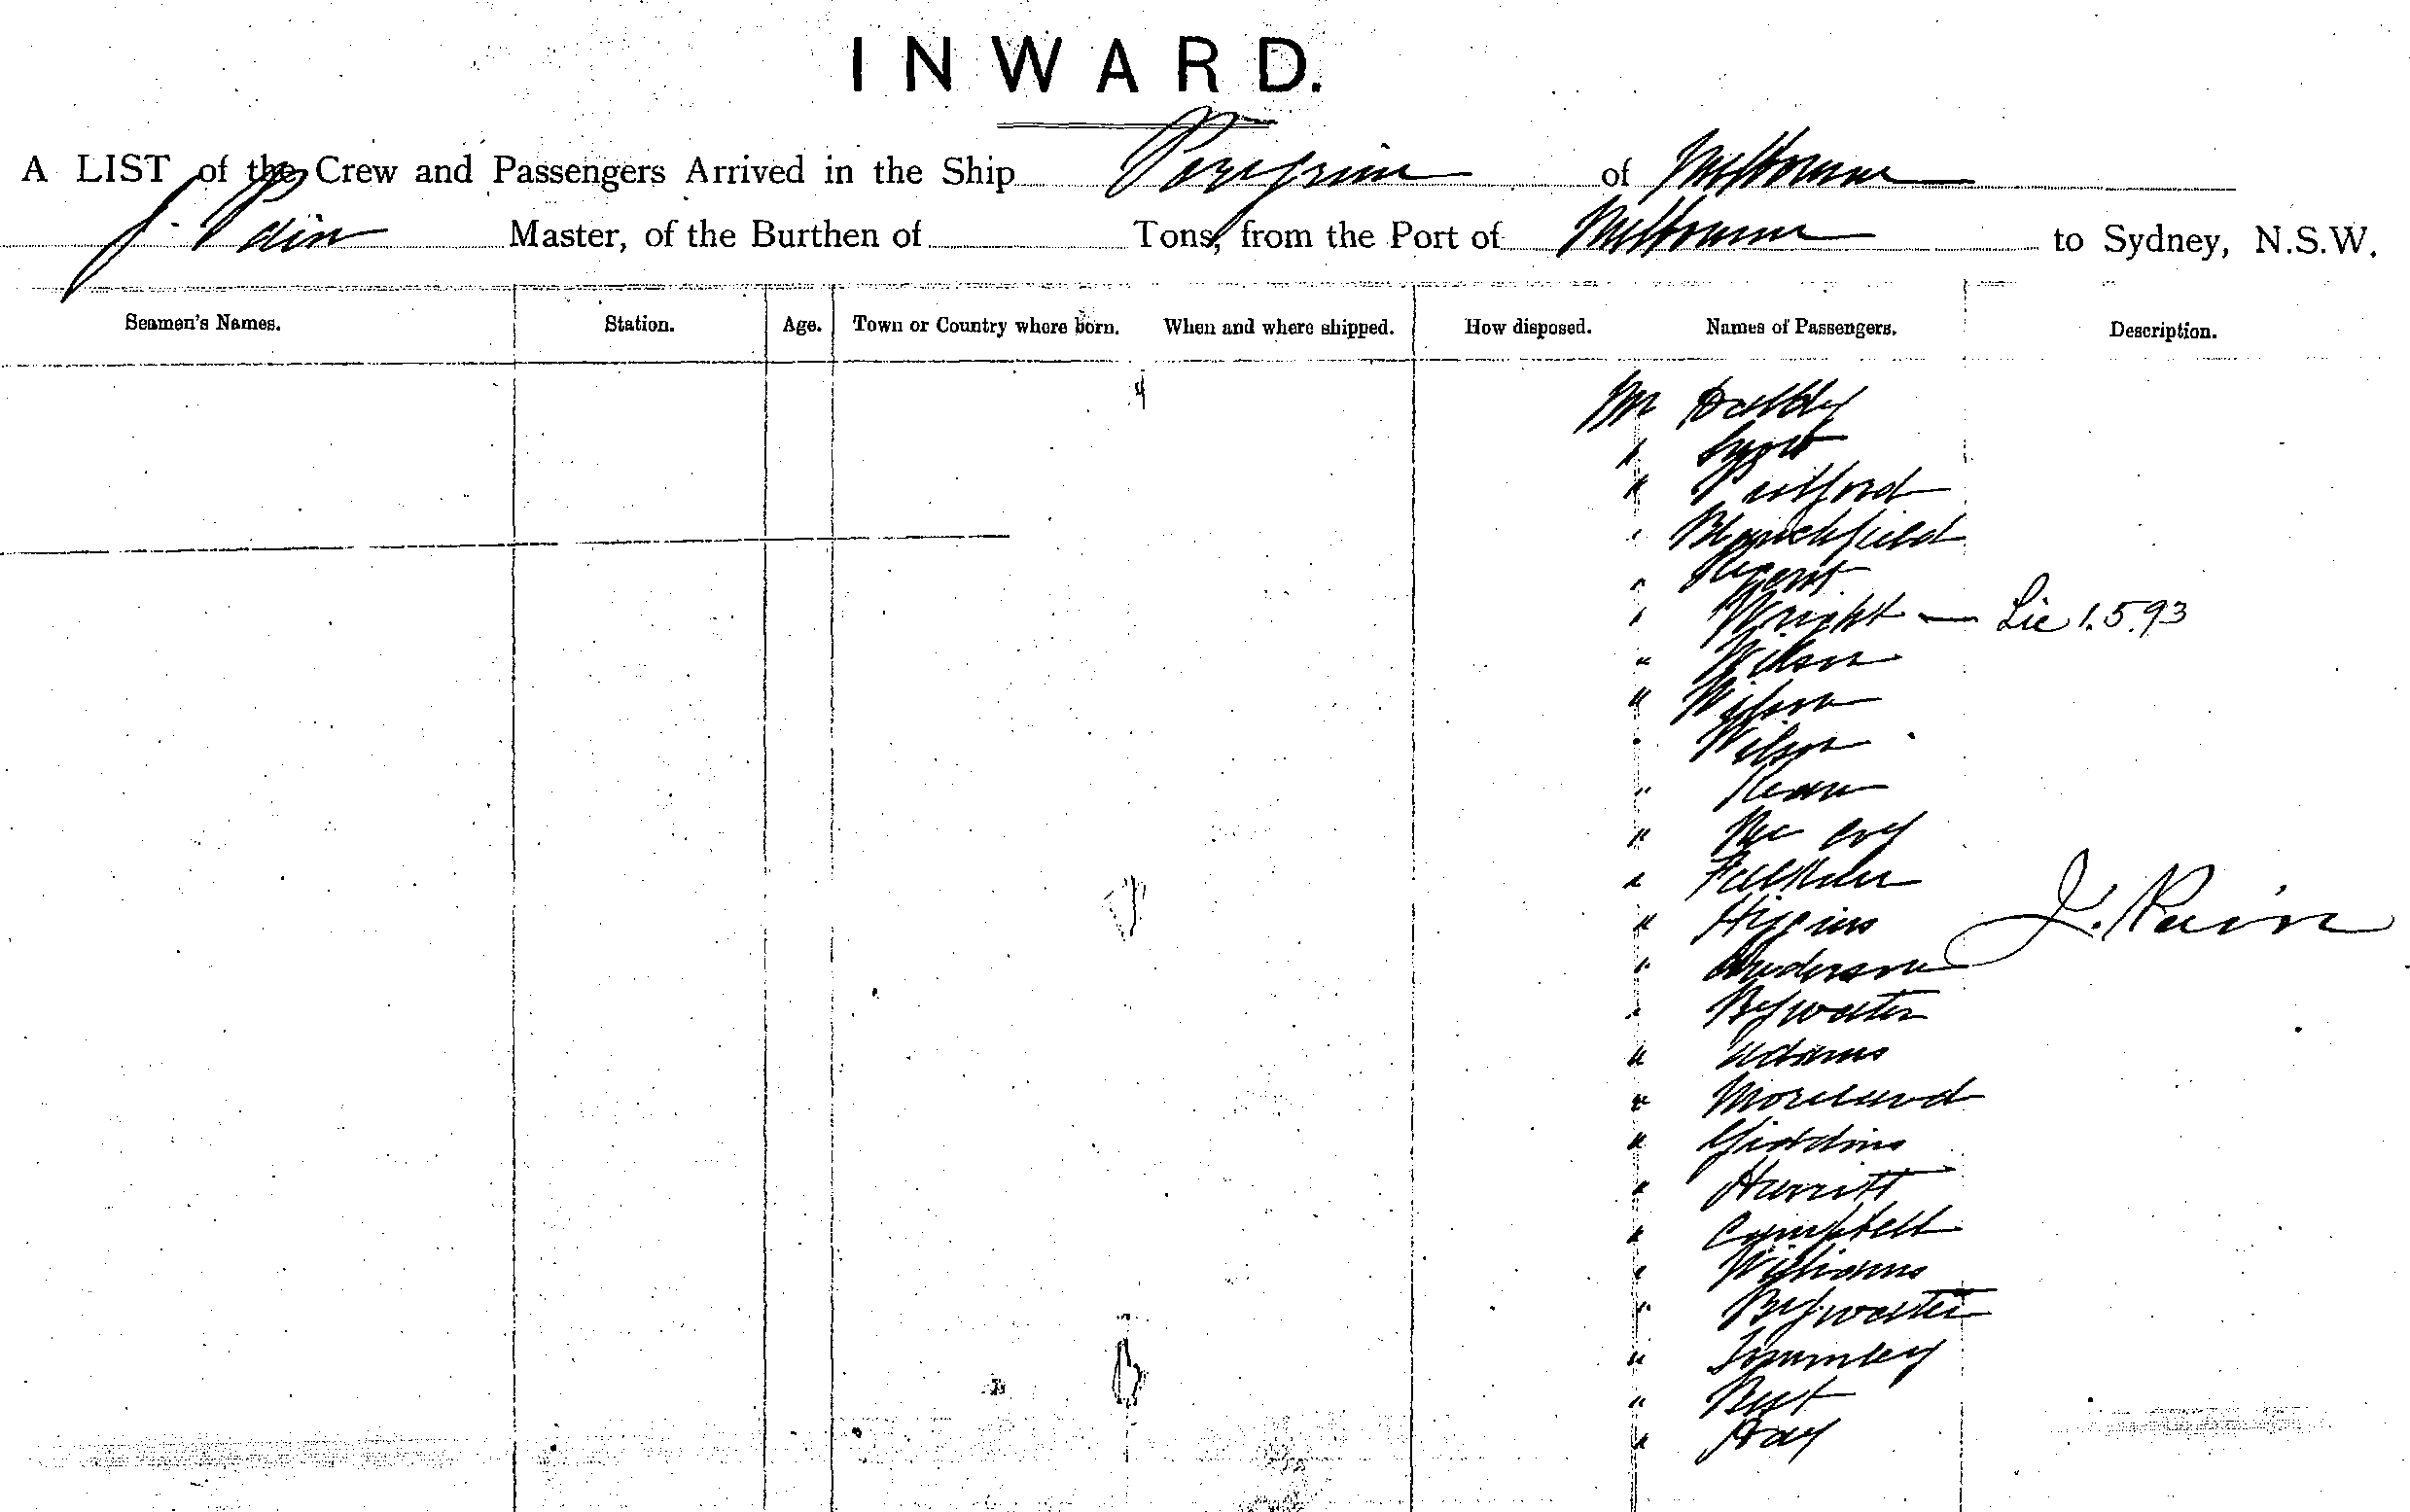 INWARD.
A LIST of the Crew and Passengers Arrived in the Ship Peregrine of Melbourne
J. Pain Master, of the Burthen of Tons, from the Port of Melbourne to Sydney, N.S.W.
Seamen's Names. Station. Age. Town or Country where born. When and where shipped. How disposed. Names of Passengers. Description.
Mr
"
"
" Blanchfield
"
" Wright — Lic 1.5.93
" Wilson
" Wilson
" Wilson
" Kean
" Mc
"
" Higgins
" Anderson
" Bywater
" Adams
" Moreland
" Giddins
"
" Campbell
" Williams
" Bywater
"
"
" Day
J. Pain